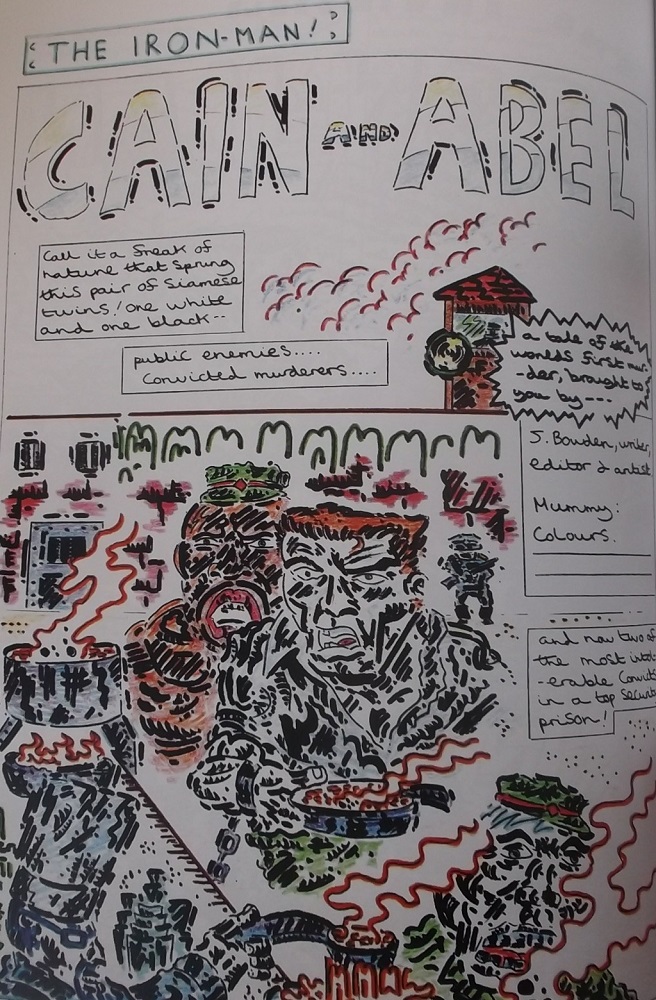 THE IRON-MAN!
CAIN AND ABEL
Call it a freak of
nature that sprung
this pair of siamese
twins! one white
and one black--
public enemies....
Convicted murderers....
a tale of the
worlds first mur-
-der, brought to
you by---
J. Bowden, writer,
editor & artist
Mummy:
Colours.
and now two of
the most intol-
-erable convicts
in a top security
prison!